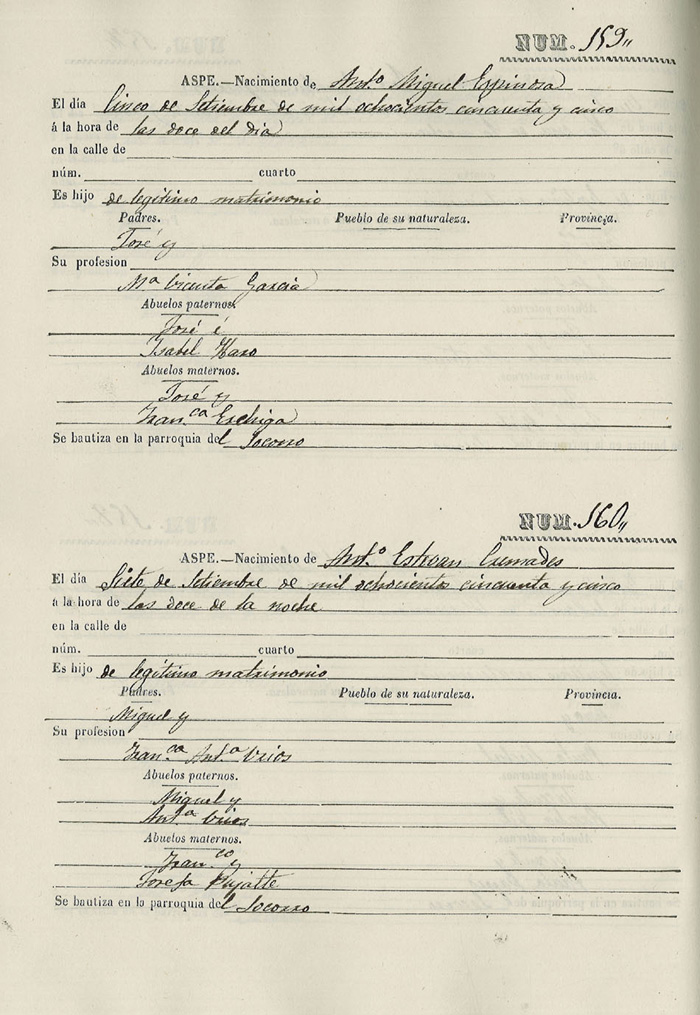 NUM. 159„
ASPE.—Nacimiento de Ant.º Miguel Espinosa
El día Cinco de Setiembre de mil ochocientos cincuenta y cinco
á la hora de las doce del dia
en la calle de
núm. cuarto
Es hijo de legítimo matrimonio
Padres. Pueblo de su naturaleza. Provincia.
José y
Su profesion
Mª Vicenta Garcia
Abuelos paternos.
José é
Isabel Haro
Abuelos maternos.
José y
Fran.ca
Se bautiza en la parroquia del Socorro
NUM. 160„
ASPE.—Nacimiento de Ant.º Estevan Cremades
El día Siete de Setiembre de mil ochocientos cincuenta y cinco
á la hora de las doce de la noche
en la calle de
núm. cuarto
Es hijo de legítimo matrimonio
Padres. Pueblo de su naturaleza. Provincia.
Miguel y
Su profesion
Fran.ca Ant.a Urios
Abuelos paternos.
Miguel y
Ant.a Urios
Abuelos maternos.
Fran.co y
Josefa Pujalte
Se bautiza en la parroquia del Socorro